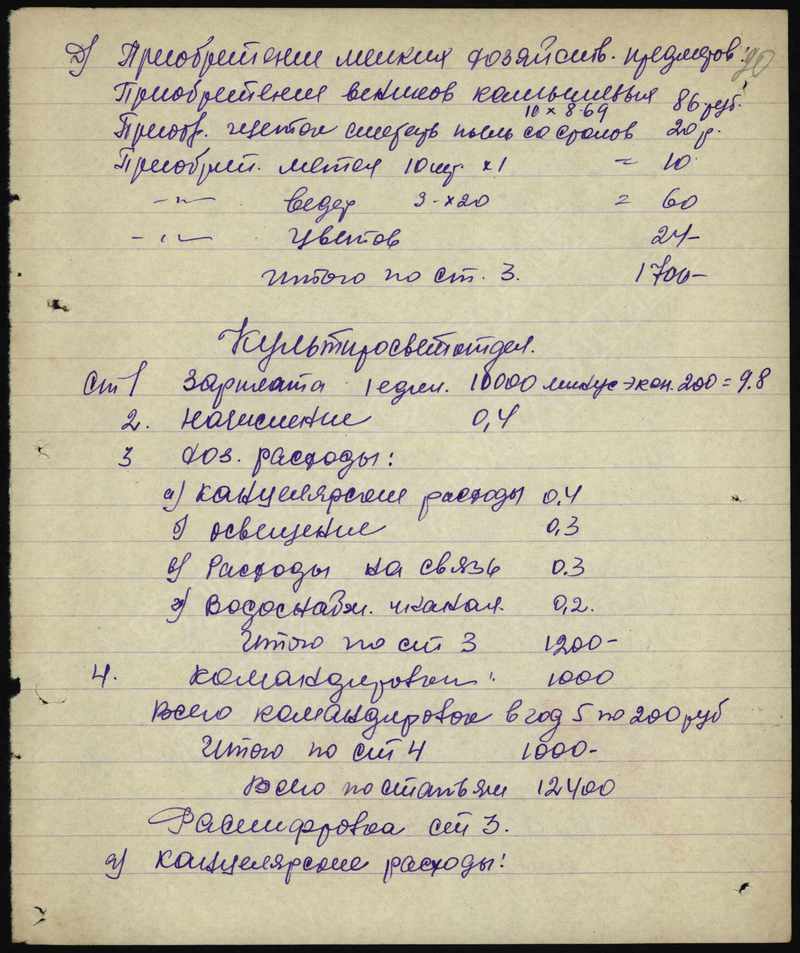 Д) Приобретение мелких хозяйств. предметов: 90
Приобретения веников камышевых 86 руб.
10 × 8-69
Приобр. щеток сметать пыль со столов 20 р.
Приобрит. метел 10 шт × 1 = 10
—"— ведер 3 - × 20 = 60
—"— цветов 24-
Итого по ст. 3. 1700-
Культпросветотдел.
Ст 1 Зарплата 1 един. 10000 минус экон. 200 = 9.8
2. Начисление 0,4
3 Хоз. расходы:
а) канцелярские расходы 0,4
б) освещение 0,3
в) Расходы на связь 0.3
г) Водоснабж. и канал. 0,2.
Итого по ст 3 1200-
4. Командировки: 1000
Всего командировок в год 5 по 200 руб
Итого по ст 4 1000-
Всего по статьям 12400
Расшифровка ст 3.
а) Канцелярские расходы: